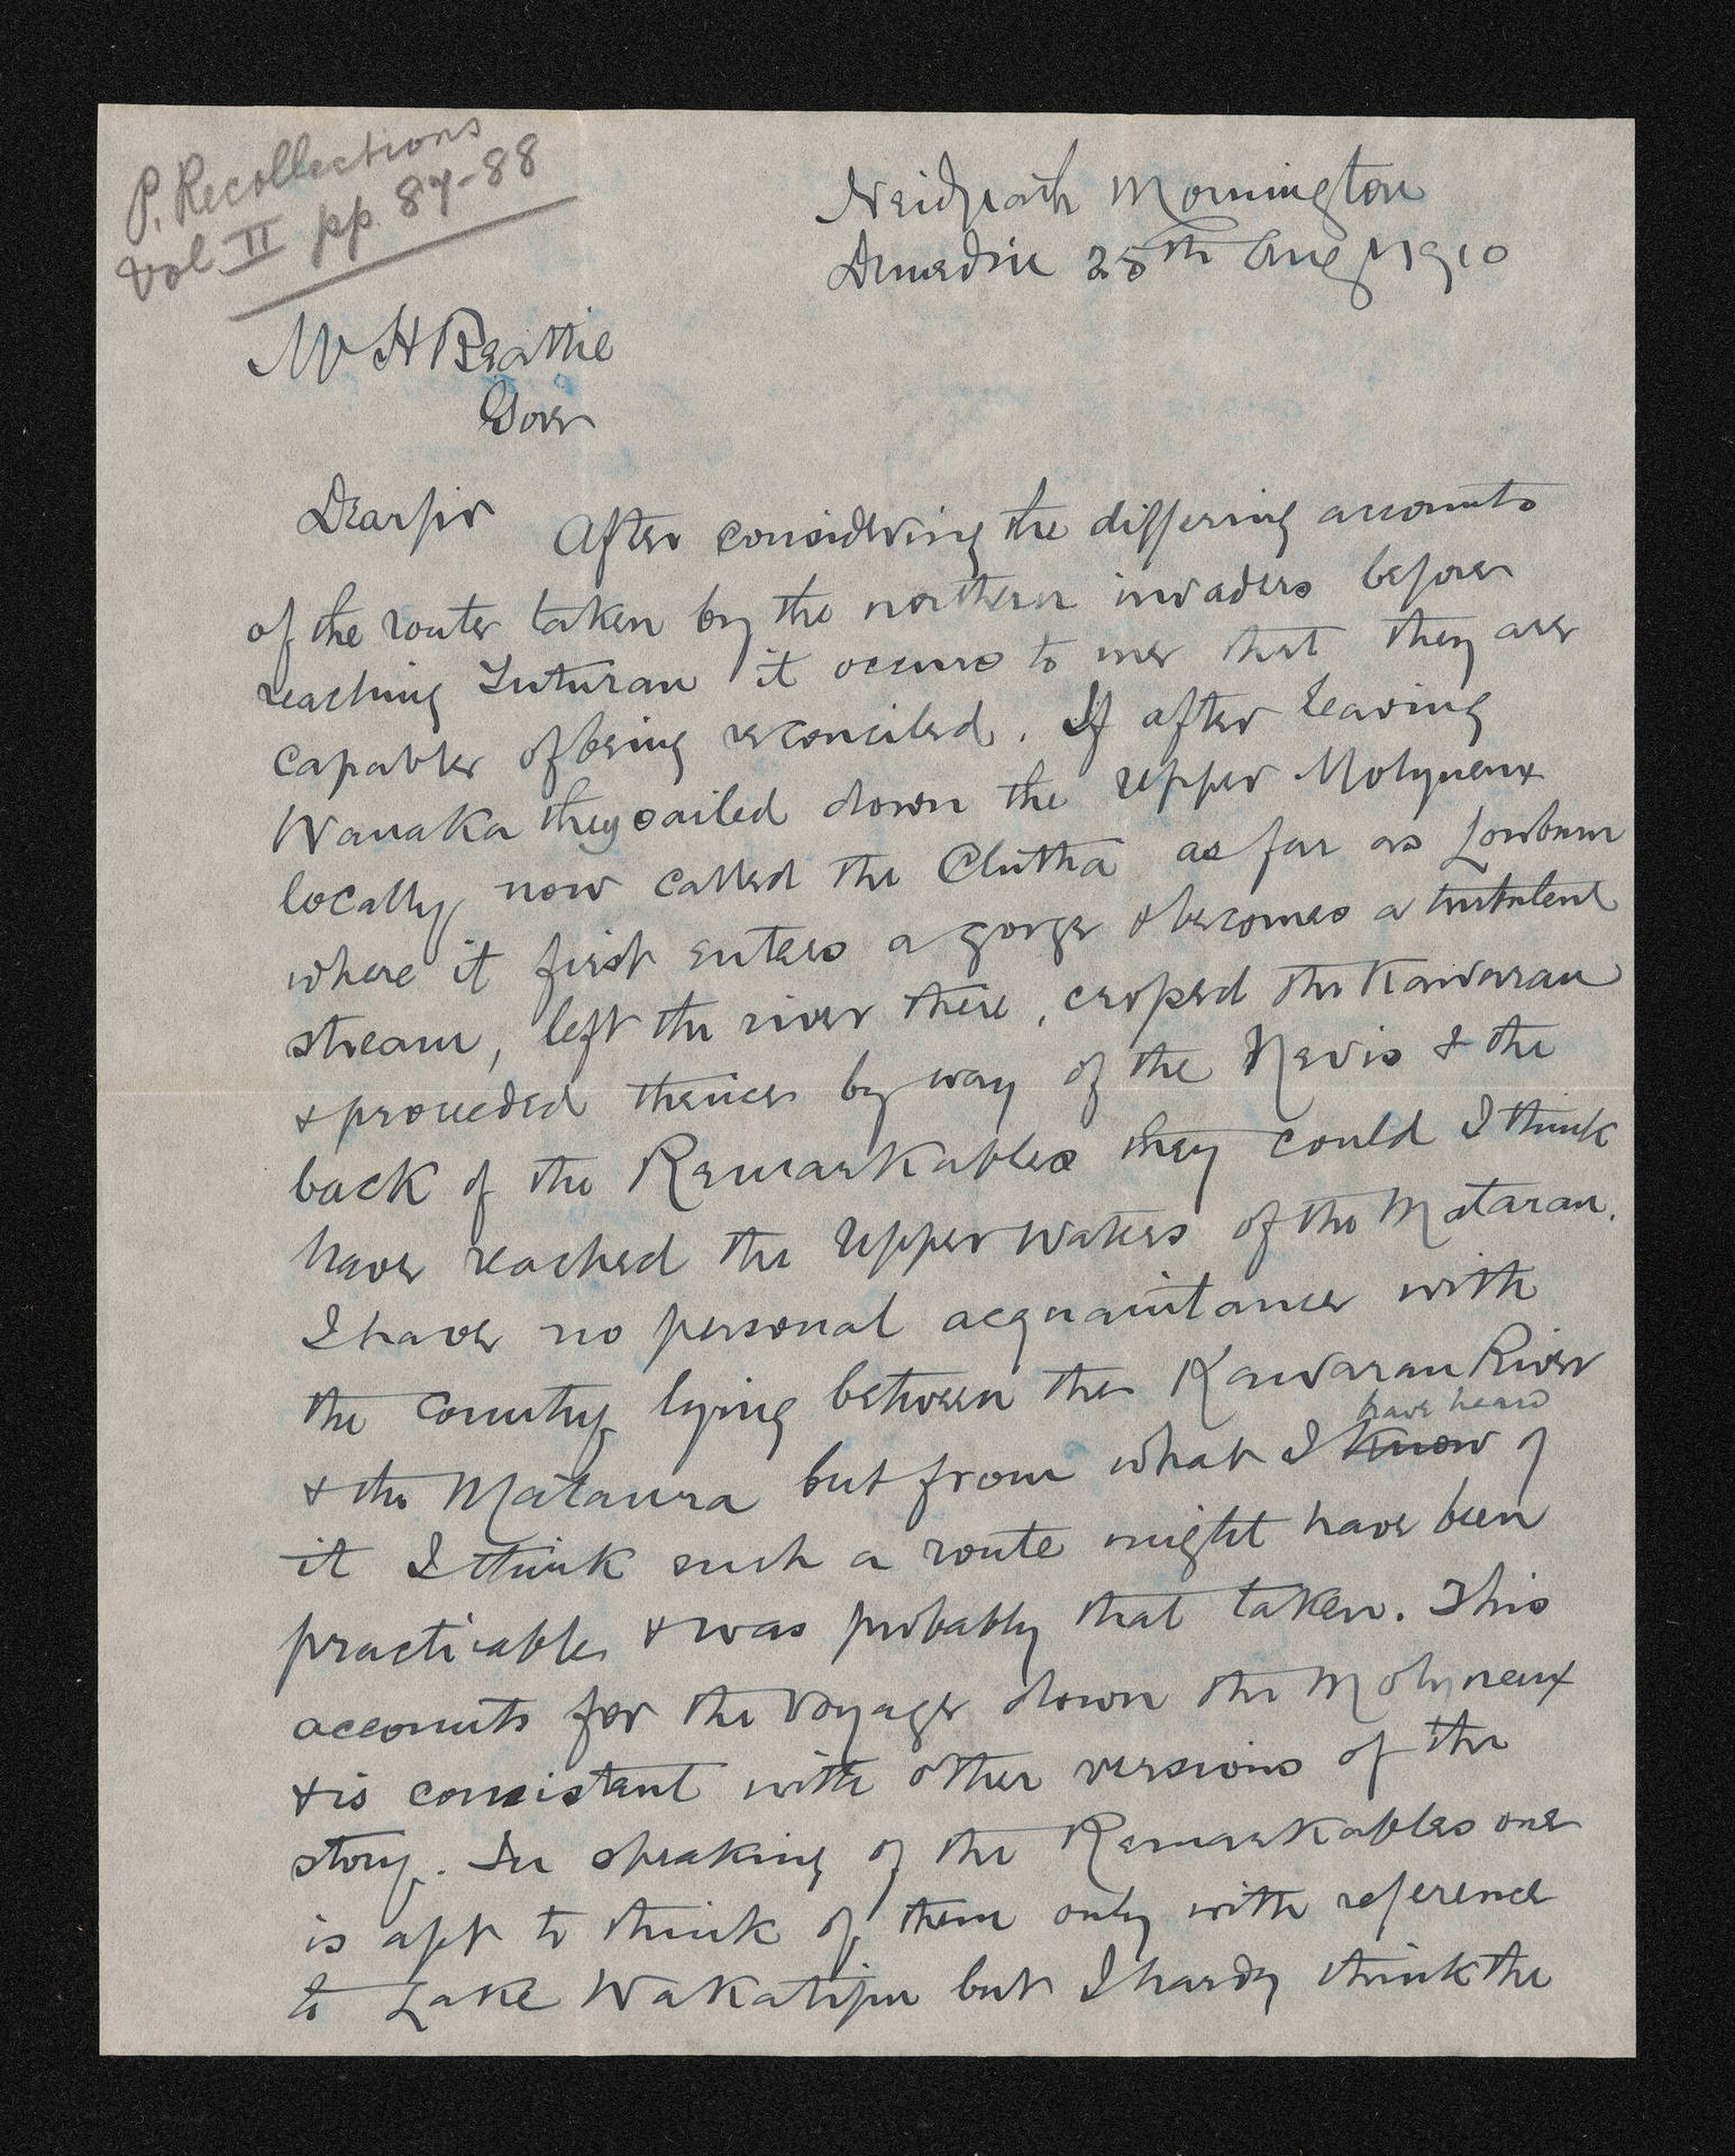 P. Recollections
Vol II pp. 87-88
Neidpath Mornington
Dunedin 25th Aug 1910
Mr H Beattie
Gore
Dear Sir After considering the differing accounts
of the route taken by the northern invaders before
reaching Tuturau it occurs to me that they are
capable of being reconciled. If after leaving
Wanaka they sailed down the upper Molyneux
locally now called the Clutha as far as Lowburn
where it first enters a gorge & becomes a turbulent
stream, left the river there, crossed the Kawarau
& proceeded thence by way of the Nevis & the
back of the Remarkables they could I think
have reached the upper waters of the Mataura.
I have no personal acquaintance with
the country lying between the Kawarau River
have heard
& the Mataura but from what I know of
it I think such a route might have been
practicable & was probably that taken. This
accounts for the voyage down the Molyneux
& is consistent with other versions of the
story. In speaking of the Remarkables one
is apt to think of them only with reference
to Lake Wakatipu but I hardy think the